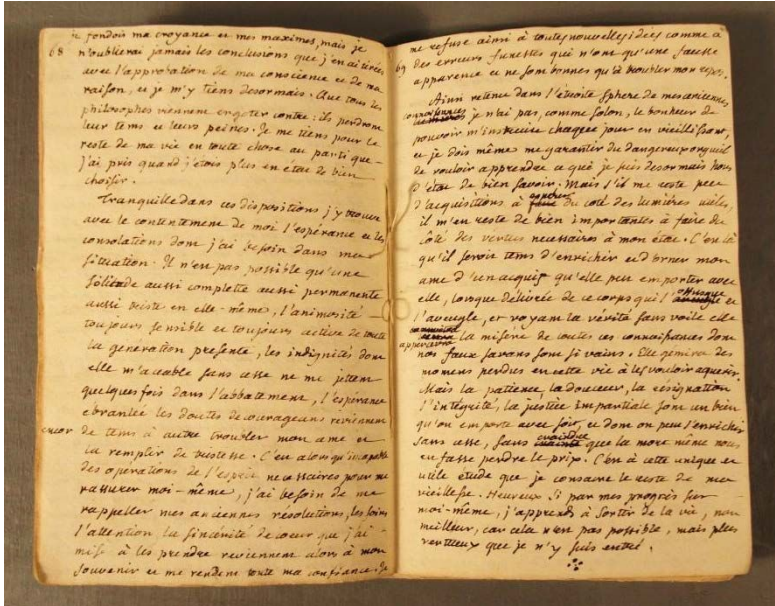 68
je fondois ma croyance et mes maximes, mais je
n'oublierai jamais les conclusions que j'en ai tirées
avec l'approbation de ma conscience et de ma
raison, et je m'y tiens desormais. Que tous les
philosophes viennent ergoter contre : ils perdront
leur tems et leurs peines. Je me tiens pour le
reste de ma vie en toute chose au parti que
j'ai pris quand j'étois plus en état de bien
choisir.
Tranquille dans ces dispositions j'y trouve
avec le contentement de moi l'espérance et les
consolations dont j'ai besoin dans ma
situation. Il n'est pas possible qu'une
solitude aussi complette aussi permanente
aussi triste en elle-même, l'animosité
toujours sensible et toujours active de toute
la generation presente, les indignités dont
elle m'accable sans cesse ne me jettent
quelques fois dans l'abbatement, l'espérance
ebranlée les doutes decourageans reviennent
encor de tems à autre troubler mon ame et
la remplir de tristesse. C'est alors qu'incapable
des operations de l'esprit necessaires pour me
rassurer moi-même, j'ai besoin de me
rappeller mes anciennes résolutions, les soins
l'attention la sincérité de coeur que j'ai
mise à les prendre reviennent alors à mon
souvenir et me rendent toute ma confiance. Je
69
me refuse ainsi à toutes nouvelles idées comme à
des erreurs funestes qui n'ont qu'une fausse
apparence et ne sont bonnes qu'à troubler mon repos.
Ainsi retenu dans l'étroite sphere de mes anciennes
connoissances je n'ai pas, comme Solon, le bonheur de
pouvoir m'instruire chaque jour en vieillissant,
et je dois même me garantir du dangereux orgueil
de vouloir apprendre ce que je suis desormais hors
d'état de bien savoir. Mais s'il me reste peu
d'acquisitions à espérer du coté des lumières utiles,
il m'en reste de bien importantes à faire du
coté des vertus necessaires à mon état. C'est là
qu'il seroit tems d'enrichir et d'orner mon
ame d'un acquis qu'elle put emporter avec
elle, lorsque délivrée de ce corps qui l'offusque et
l'aveugle, et voyant la vérité sans voile elle
appercevra la misére de toutes ces connoissances dont
nos faux savans sont si vains. Elle gemira des
momens perdus en cette vie à les vouloir aquerir.
Mais la patience, la douceur, la résignation
l'intégrité, la justice impartiale sont un bien
qu'on emporte avec soi, et dont on peut s'enrichir
sans cesse, sans craindre que la mort même nous
en fasse perdre le prix. C'est à cette unique et
utile étude que je consacre le reste de ma
vieillesse. Heureux si par mes progrès sur
moi-même, j'apprends à sortir de la vie, non
meilleur, car cela n'est pas possible, mais plus
vertueux que je n'y suis entré.